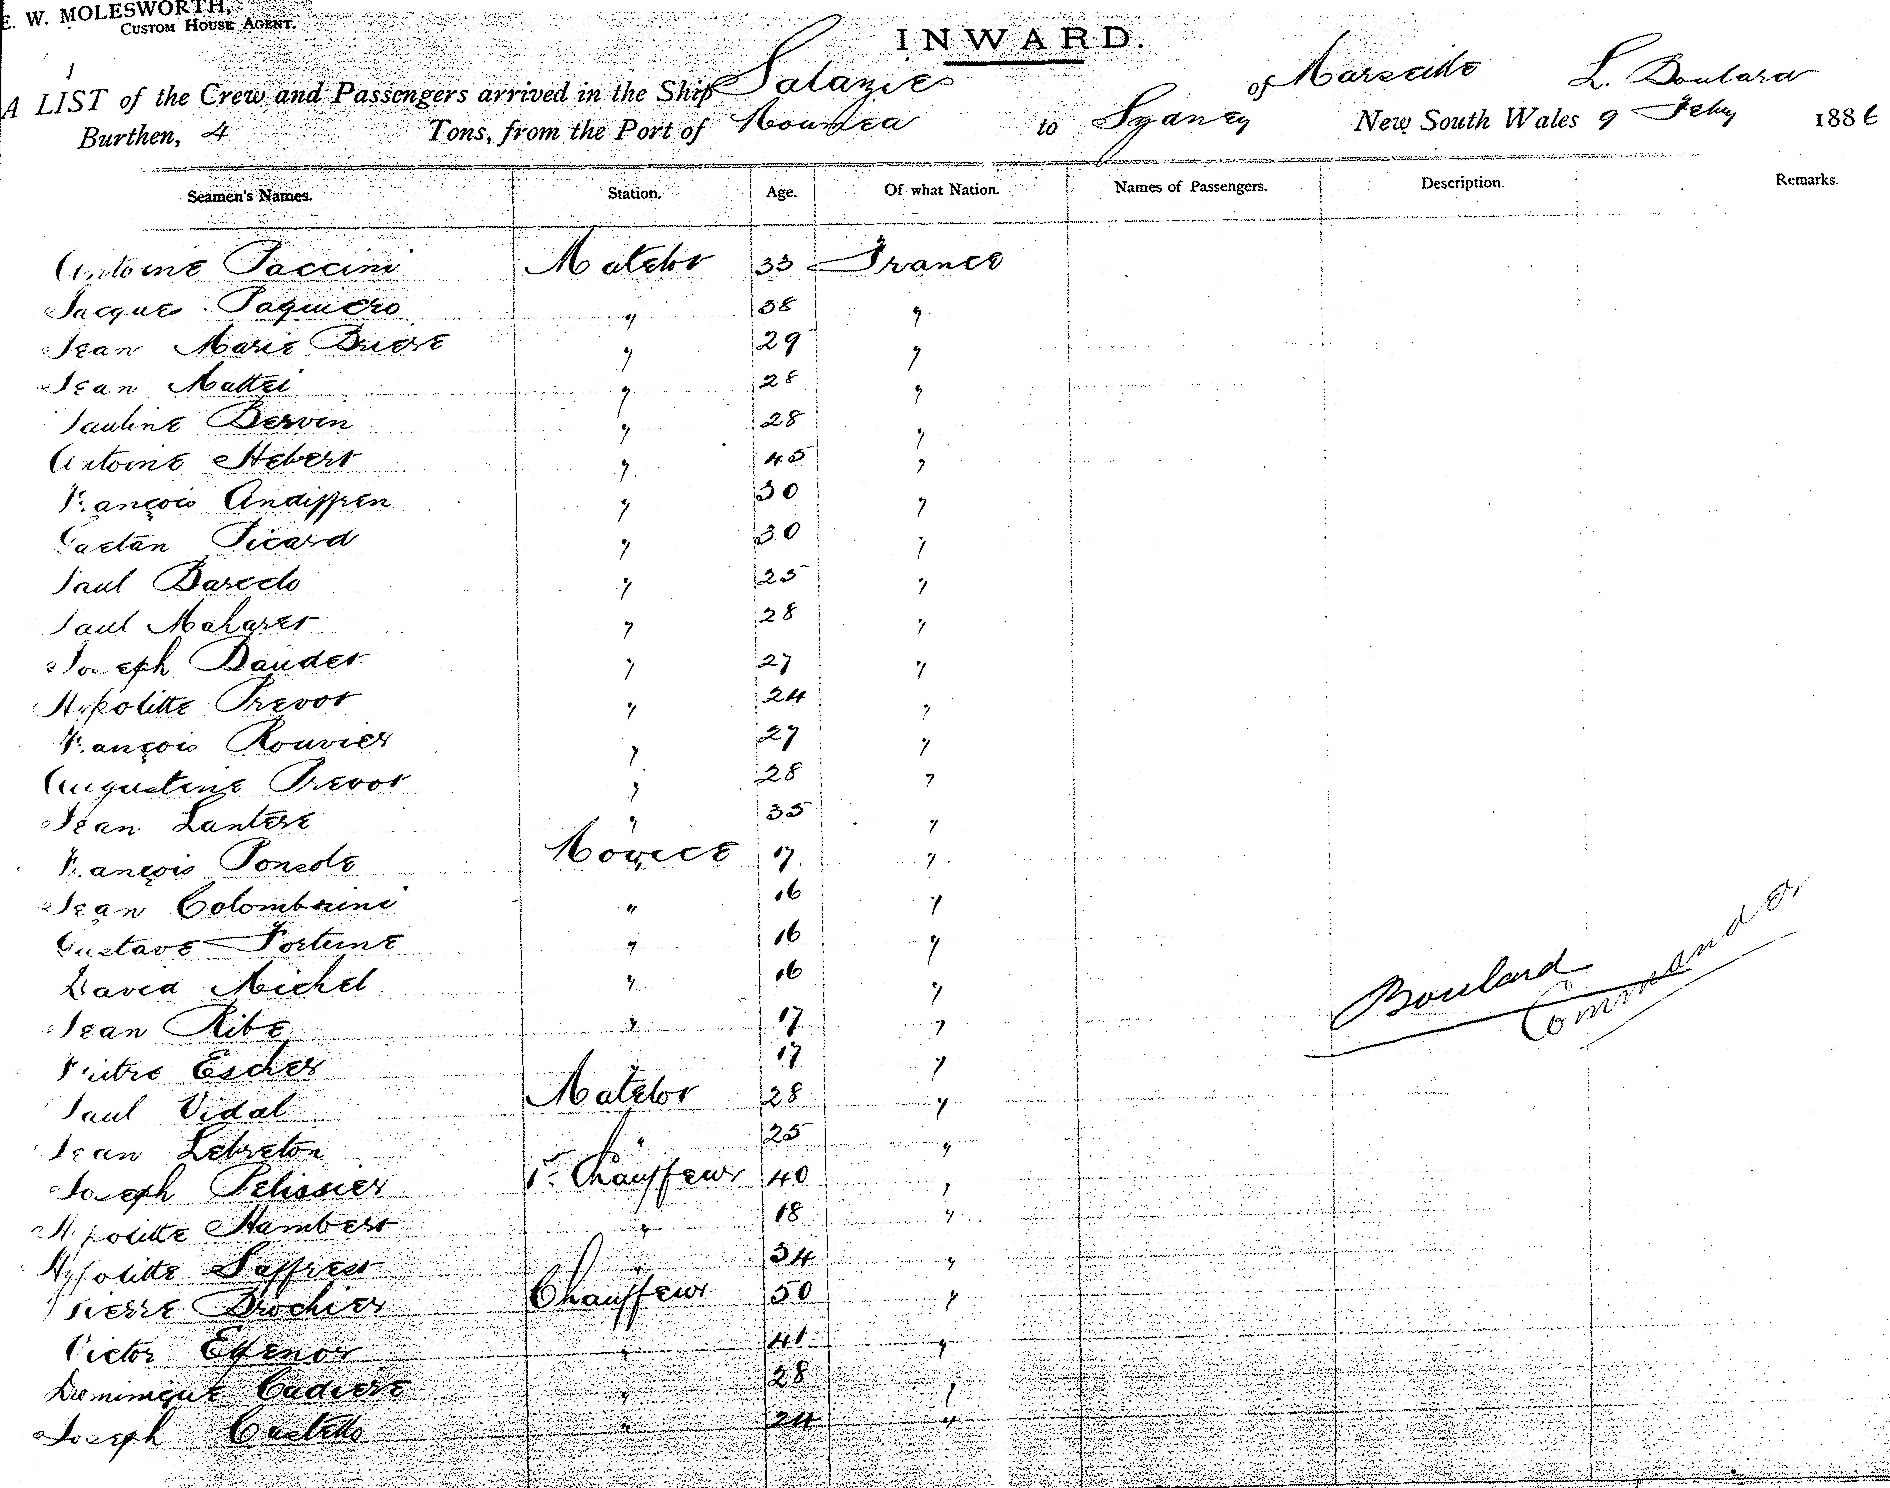 E. W. MOLESWORTH,
CUSTOM HOUSE AGENT.
INWARD.
A LIST of the Crew and Passengers arrived in the Ship Salazie of Marseille L. Boulard
Burthen, 4 Tons, from the Port of Noumea to Sydney New South Wales 9 Feby 1886
Seamen's Names. Station. Age. Of what Nation. Names of Passengers. Description. Remarks.
Antoine Paccini Matelot 33 France
Jacques Paquiero " 38 "
Jean Marie Briere " 29 "
Jean Mattei " 28 "
Pauline Bervin " 28 "
Antoine Hebert " 45 "
François Andiffren " 30 "
Gaetan Picard " 30 "
Paul Barello " 25 "
Paul Maharet " 28 "
Joseph Daudet " 27 "
Hypolitte Prevot " 24 "
François Rouvier " 27 "
Augustine Prevot " 28 "
Jean Lantere " 35 "
François Ponsole Novice 17 "
Jean Colombrini " 16 "
Gustave Fortune " 16 "
David Michel " 16 "
Jean Ribe " 17 "
Escher " 17 "
Paul Vidal Matelot 28 "
Jean Lebreton " 25 "
Joseph Pelissier 1r Chauffeur 40 "
Hypolitte Hambert " 18 "
Hypolitte Saffret " 34 "
Pierre Brochier Chauffeur 50 "
Victor Egenor " 41 "
Dominique Cadiere " 28 "
Joseph Castello " 24 "
Boulard
Commander